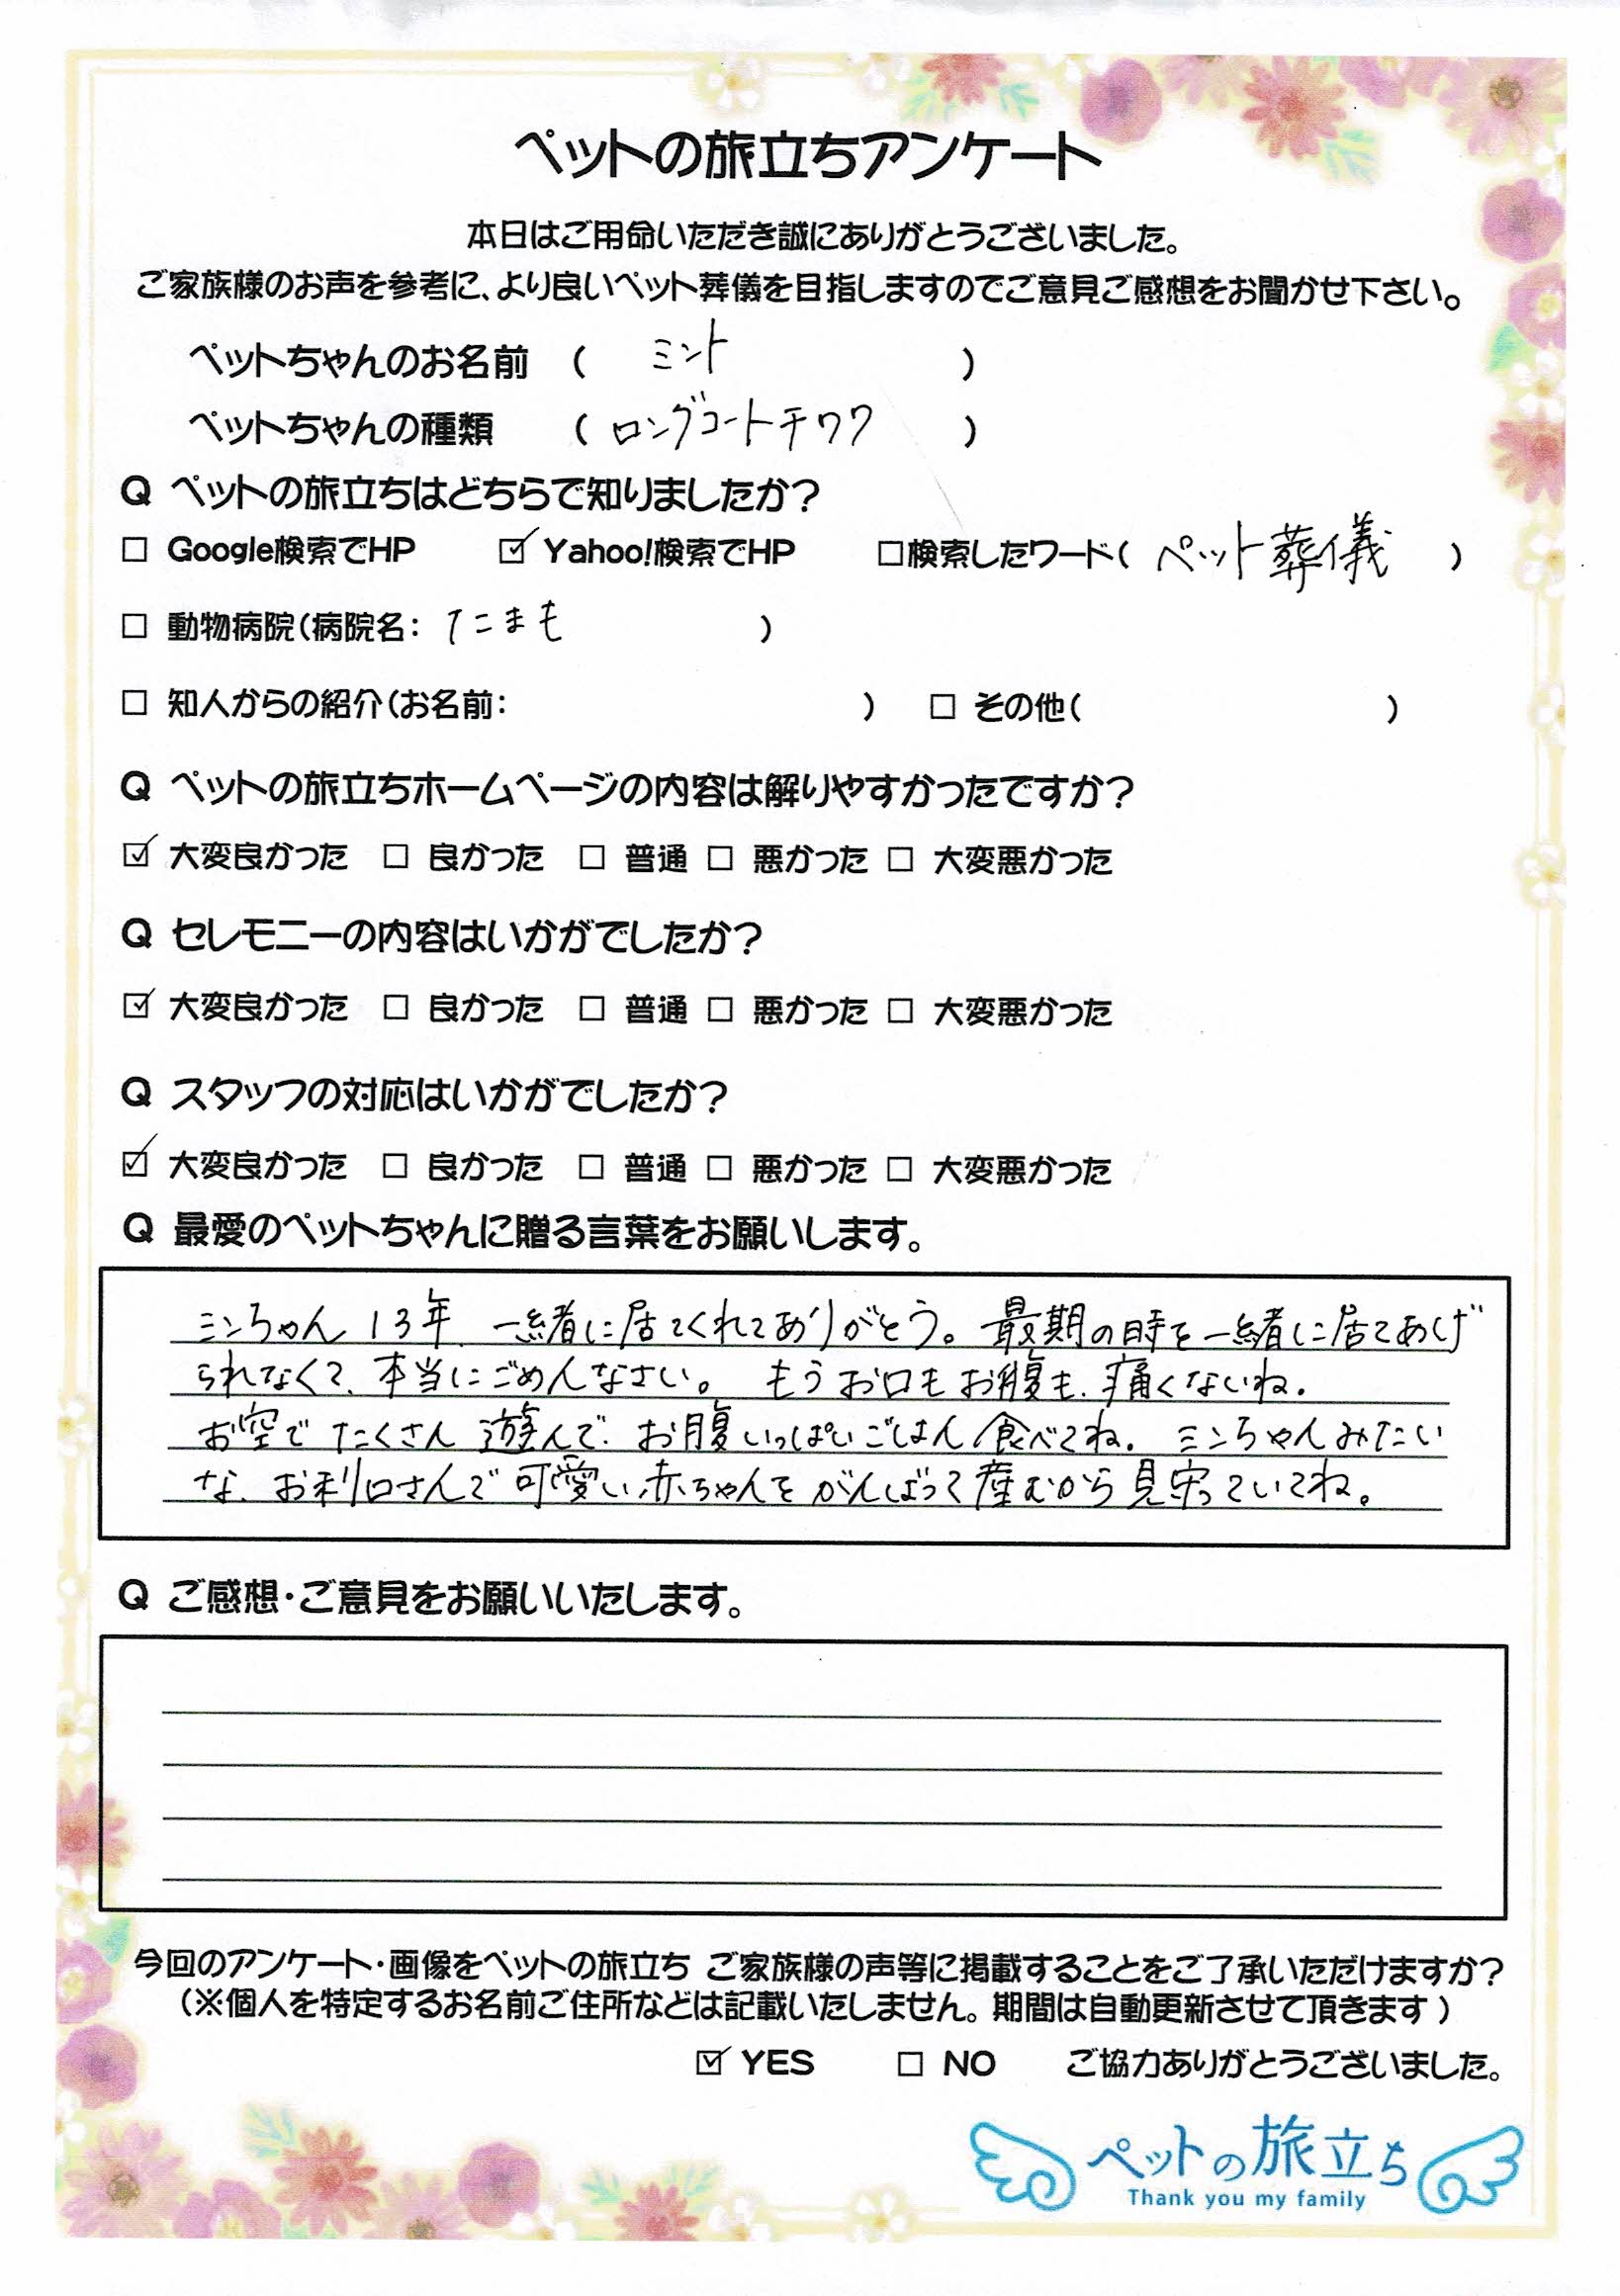 ペットの旅立ちアンケート
本日はご用命いただき誠にありがとうございました。
ご家族様のお声を参考に、より良いペット葬儀を目指しますのでご意見ご感想をお聞かせ下さい。
ペットちゃんのお名前 ( ミント )
ペットちゃんの種類 ( ロングコートチワワ )
Q ペットの旅立ちはどちらで知りましたか?
□ Google検索でHP ☑ Yahoo!検索でHP □検索したワード( ペット葬儀 )
□ 動物病院(病院名: たこまも )
□ 知人からの紹介(お名前: ) □ その他( )
Q ペットの旅立ちホームページの内容は解りやすかったですか?
☑ 大変良かった □ 良かった □ 普通 □ 悪かった □ 大変悪かった
Q セレモニーの内容はいかがでしたか?
☑ 大変良かった □ 良かった □ 普通 □ 悪かった □ 大変悪かった
Q スタッフの対応はいかがでしたか?
☑ 大変良かった □ 良かった □ 普通 □ 悪かった □ 大変悪かった
Q 最愛のペットちゃんに贈る言葉をお願いします。
ミンちゃん 13年、一緒に居てくれてありがとう。最期の時を一緒に居てあげ
られなくて、本当にごめんなさい。 もうお口もお腹も、痛くないね。
お空でたくさん遊んで、お腹いっぱいごはん食べてね。ミンちゃんみたい
な、お利口さんで可愛い赤ちゃんをがんばって産むから見守っていてね。
Q ご感想・ご意見をお願いいたします。
今回のアンケート・画像をペットの旅立ち ご家族様の声等に掲載することをご了承いただけますか?
(※個人を特定するお名前ご住所などは記載いたしません。期間は自動更新させて頂きます)
☑ YES □ NO ご協力ありがとうございました。
ペットの旅立ち
Thank you my family